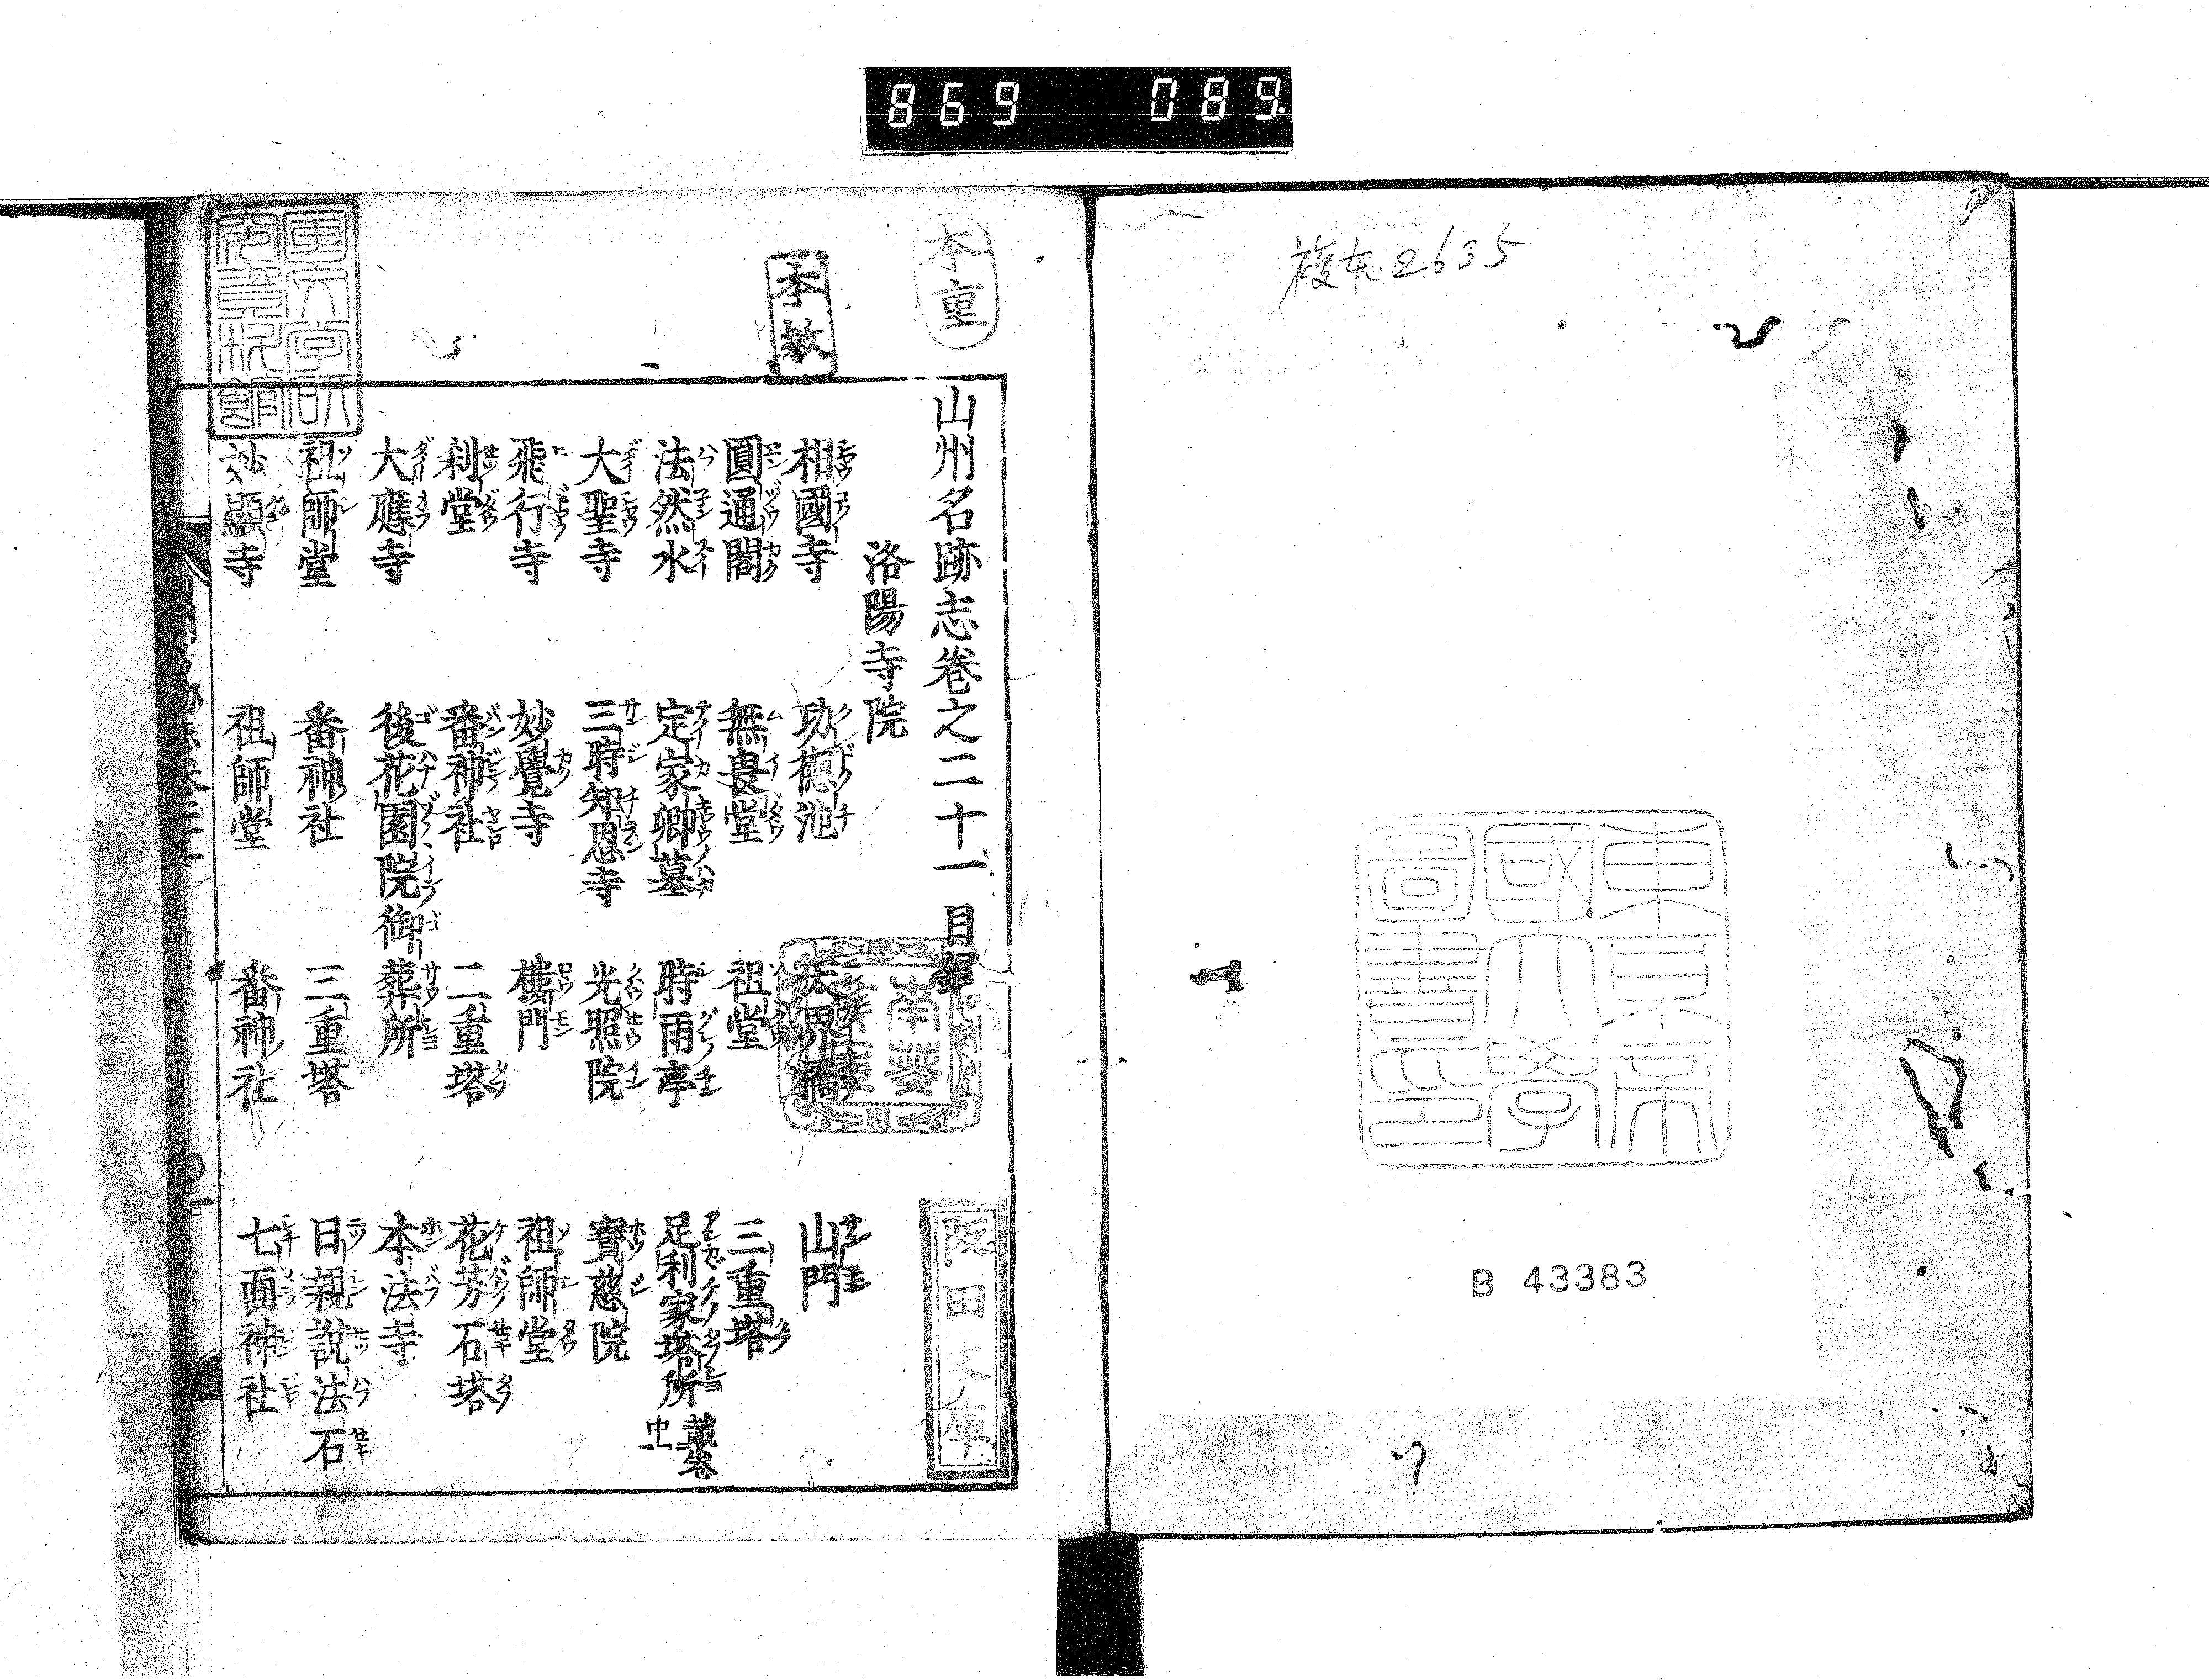 869 089.
複本 2635
東京帝
國大學
圖書印
B 43383
本重
本教
山州名跡志卷之二十一目録
洛陽寺院
相國寺 功德池 天界橋 山門
圓通閣 無畏堂 祖堂 三重塔
法然水 定家卿墓 時雨亭 足利家塔所 載卷中
大聖寺 三時知恩寺 光照院 寶慈院
飛行寺 妙覺寺 樓門 祖師堂
刹堂 番神社 二重塔 花芳石塔
大應寺 後花園院御葬所 本法寺
祖師堂 番神社 三重塔 日親說法石
妙顯寺 祖師堂 番神社 七面神社
南葵文庫
阪田文庫